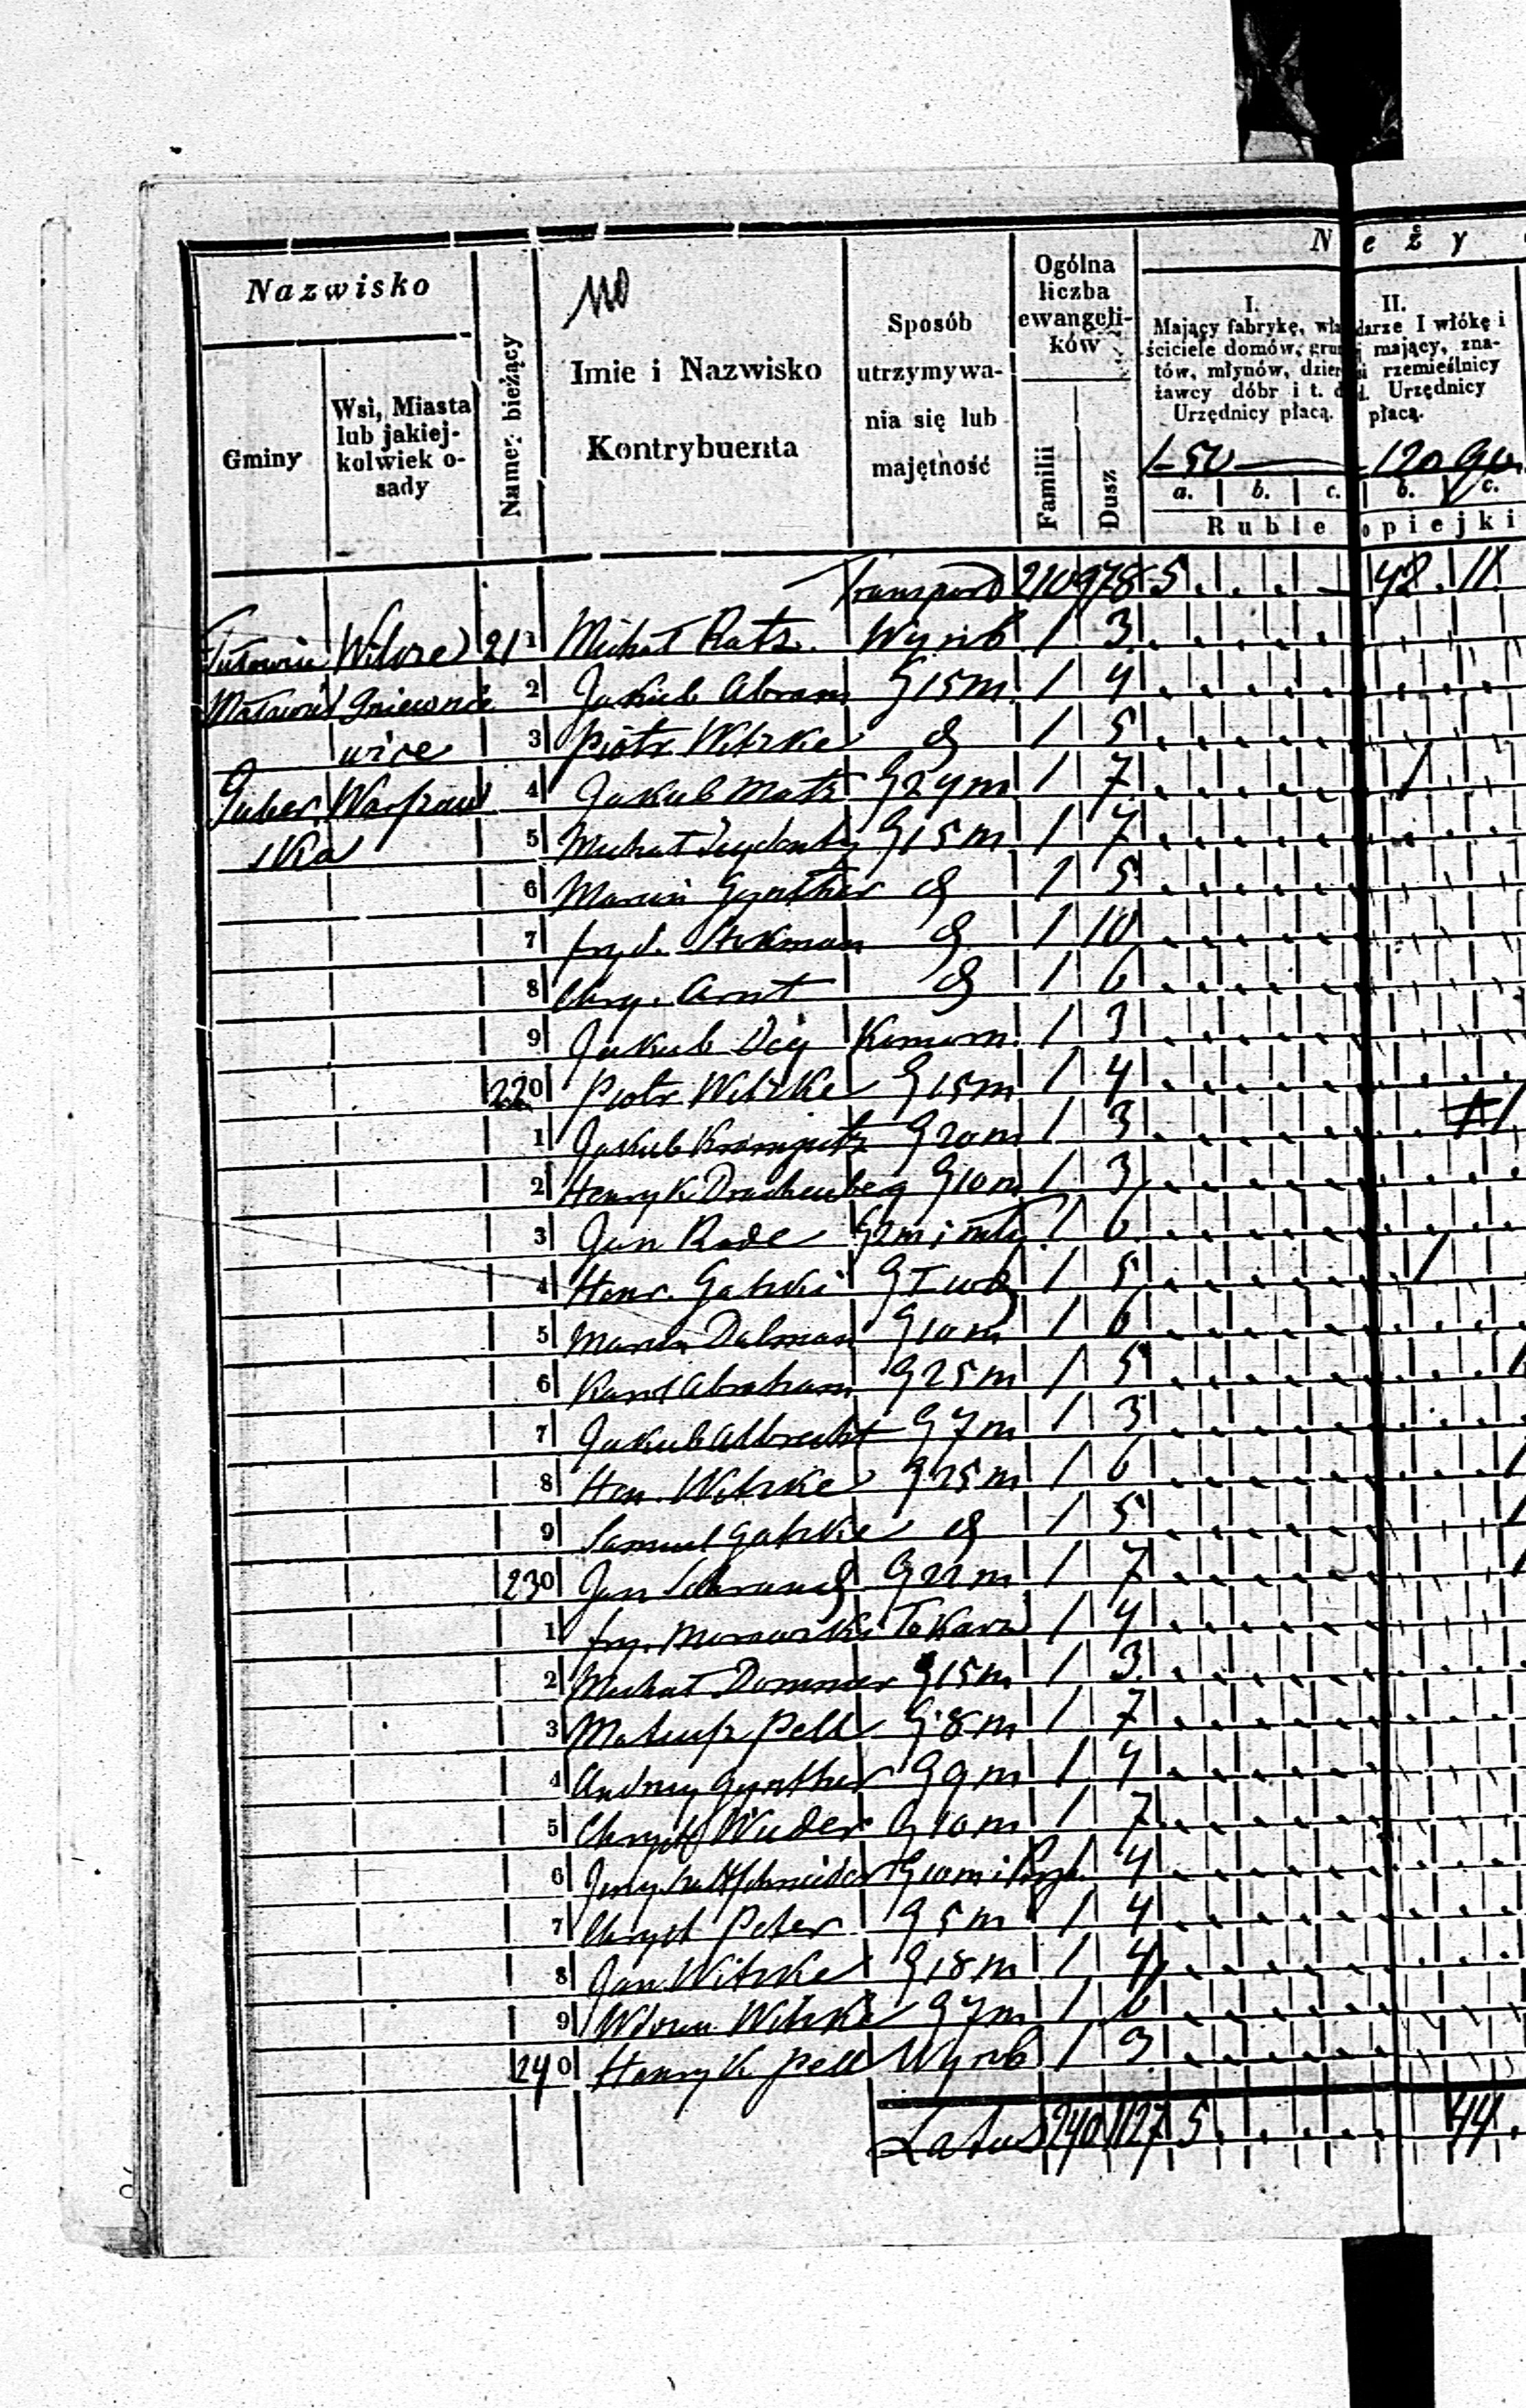 Nazwisko
Gminy
Wsi, Miasta lub jakiejkolwiek osady
Numer bieżący
110
Imie i Nazwisko
Kontrybuenta
Sposób utrzymywania się lub majętność
Ogólna liczba ewangelików
Familii
Dusz
N e ż y
I.
Mający fabrykę, wła
ściciele domów, grun
tów, młynów, dzier
żawcy dóbr i t. d.
Urzędnicy płacą.
II.
darze I włókę i
mający, zna-
rzemieślnicy
d. Urzędnicy
płacą.
1-50 120 90
a. b. c. b. c.
Ruble opiejki
Transport 210 978 5 42 11
21 1 Michał Ratz Wyrob 1 3
2 Jakub Abram G 15 m 1 4
3 Piotr Witzke d 1 5
wice
Guber. Warszaw 4 Jakub Matz G 24 m 1 7 1
ska 5 Michał G 15 m 1 7
6 Marcin Gynther d 1 5
7 Fryd. d 1 10
8 Chry. Arnt d 1 6
9 Jakub Komorn 1 3
220 Piotr Witzke G 15 m 1 4
1 Jakub G 20 m 1 3 1
2 Henryk Drachenberg G 10 m 1 3
3 Jan Rode 1 6
4 Henr. Gatzki G I 1 5 1
5 Marcin Dalman G 10 m 1 6
6 Karol Abraham G 25 m 1 5 1
7 Jakub Albrecht G 7 m 1 3
8 Hen. Witzke G 25 m 1 6 1
9 Samuel Gatzke d 1 5 1
230 Jan G 22 m 1 7 1
1 Fry. Murawski Tokarz 1 4
2 Michał Dommer G 15 m 1 3
3 Mateusz Pell G 8 m 1 7
4 Andrzej Gynther G 9 m 1 4
5 Chryst Wuder G 10 m 1 7
6 Jerzy G 10 m i 4
7 Chryst Peter G 5 m 1 4
8 Jan Witzke G 18 m 1 4
9 Wdowa Witzke G 7 m 1 6
240 Henryk Pell Wyrob 1 3
Latus 240 1127 5 44